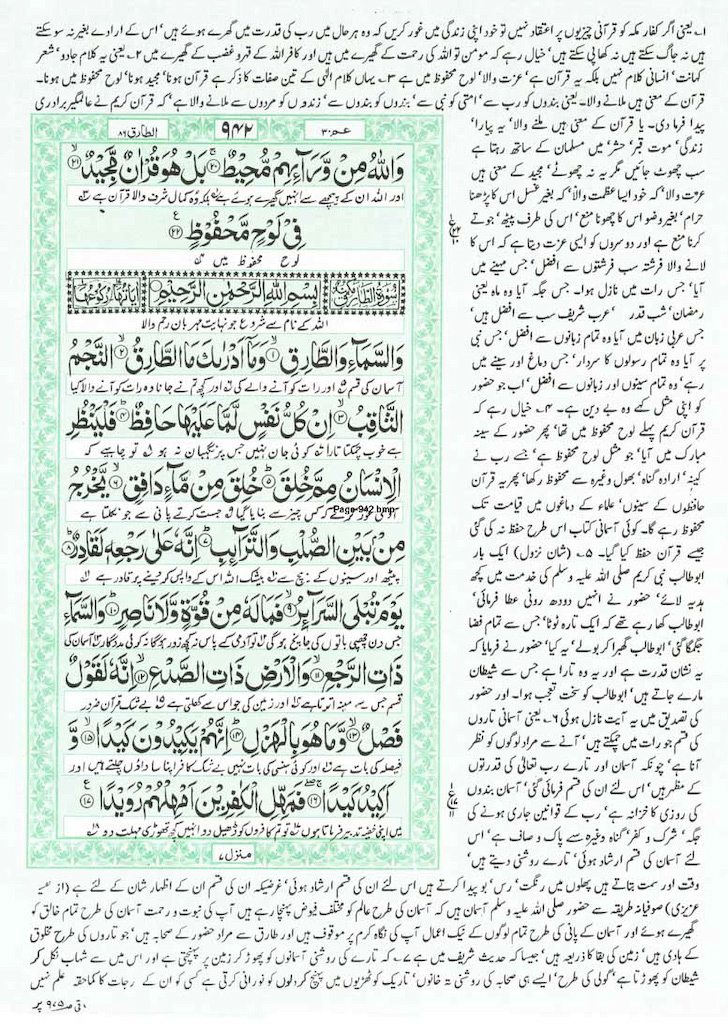 ۱۔ یعنی اگر کفار مکہ کو قرآنی چیزوں پر اعتقاد نہیں تو خود اپنی زندگی میں غور کریں کہ وہ ہر حال میں رب کی قدرت میں گھرے ہوئے ہیں‘ اس کے ارادے بغیر نہ سو سکتے
ہیں نہ جاگ سکتے ہیں نہ کھا پی سکتے ہیں‘ خیال رہے کہ مومن تو اللہ کی رحمت کے گھیرے میں ہیں اور کافر اللہ کے قہر و غضب کے گھیرے میں ۲۔ یعنی یہ کلام جادو‘ شعر
کہانت‘ انسانی کلام نہیں بلکہ یہ قرآن ہے‘ عزت والا‘ لوح محفوظ میں ہے ۳۔ یہاں کلام الٰہی کے تین صفات کا ذکر ہے قرآن ہونا‘ مجید ہونا‘ لوح محفوظ میں ہونا۔
قرآن کے معنی ہیں ملانے والا۔ یعنی بندوں کو رب سے‘ امتی کو نبی سے‘ بندوں کو بندوں سے‘ زندوں کو مردوں سے ملانے والا ہے‘ کہ قرآن کریم نے عالمگیر برادری
الطارق ۸۶
۹۴۲
عم ۳۰
وَاللّٰهُ مِنْ وَّرَآئِهِمْ مُّحِيْطٌ ۲۰ بَلْ هُوَ قُرْاٰنٌ مَّجِيْدٌ ۲۱
اور اللہ ان کے پیچھے سے انہیں گھیرے ہوئے ہے بلکہ وہ کمال شرف والا قرآن ہے
فِيْ لَوْحٍ مَّحْفُوْظٍ ۲۲
لوح محفوظ میں
سُوْرَةُ الطَّارِقِ مَكِّيَّةٌ بِسْمِ اللّٰهِ الرَّحْمٰنِ الرَّحِيْمِ
اللہ کے نام سے شروع جو نہایت مہربان رحم والا
وَالسَّمَآءِ وَالطَّارِقِ ۱ وَمَآ اَدْرٰىكَ مَا الطَّارِقُ ۲ النَّجْمُ
آسمان کی قسم اور رات کو آنے والے کی اور کچھ تم نے جانا وہ رات کو آنے والا کیا
الثَّاقِبُ ۳ اِنْ كُلُّ نَفْسٍ لَّمَّا عَلَيْهَا حَافِظٌ ۴ فَلْيَنْظُرِ
ہے خوب چمکتا تارا کوئی جان نہیں جس پر نگہبان نہ ہو تو چاہیے کہ
الْاِنْسَانُ مِمَّ خُلِقَ ۵ خُلِقَ مِنْ مَّآءٍ دَافِقٍ ۶ يَّخْرُجُ
آدمی غور کرے کہ کس چیز سے بنایا گیا جست کرتے پانی سے جو نکلتا ہے
Page-942.bmp
مِنْۢ بَيْنِ الصُّلْبِ وَالتَّرَآئِبِ ۷ اِنَّهٗ عَلٰى رَجْعِهٖ لَقَادِرٌ ۸
پیٹھ اور سینوں کے بیچ سے بیشک اللہ اس کے واپس کر دینے پر قادر ہے
يَوْمَ تُبْلَى السَّرَآئِرُ ۹ فَمَا لَهٗ مِنْ قُوَّةٍ وَّلَا نَاصِرٍ ۱۰ وَالسَّمَآءِ
جس دن چھپی باتوں کی جانچ ہوگی تو آدمی کے پاس نہ کچھ زور ہوگا نہ کوئی مددگار آسمان کی
ذَاتِ الرَّجْعِ ۱۱ وَالْاَرْضِ ذَاتِ الصَّدْعِ ۱۲ اِنَّهٗ لَقَوْلٌ
قسم جس سے مینہ اترتا ہے اور زمین کی جو اس سے کھلتی ہے بے شک قرآن ضرور
فَصْلٌ ۱۳ وَّمَا هُوَ بِالْهَزْلِ ۱۴ اِنَّهُمْ يَكِيْدُوْنَ كَيْدًا ۱۵ وَّ
فیصلہ کی بات ہے اور کوئی ہنسی کی بات نہیں بے شک کافر اپنا سا داؤں چلتے ہیں اور
اَكِيْدُ كَيْدًا ۱۶ فَمَهِّلِ الْكٰفِرِيْنَ اَمْهِلْهُمْ رُوَيْدًا ۱۷
میں اپنی خفیہ تدبیر فرماتا ہوں تو تم کافروں کو ڈھیل دو انہیں کچھ تھوڑی مہلت دو
منزل ۷
پیدا فرما دی۔ یا قرآن کے معنی ہیں ملنے والا‘ یہ پیارا‘
زندگی‘ موت قبر‘ حشر‘ میں مسلمان کے ساتھ رہتا ہے
سب چھوٹ جائیں مگر یہ نہ چھوٹے‘ مجید کے معنی ہیں
عزت والا‘ کہ خود ایسا عظمت والا‘ کہ بغیر غسل اس کا پڑھنا
حرام‘ بغیر وضو اس کا چھونا منع‘ اس کی طرف پیٹھ‘ جوتے
کرنا منع ہے اور دوسروں کو ایسی عزت دیتا ہے کہ اس کا
لانے والا فرشتہ سب فرشتوں سے افضل‘ جس مہینے میں
آیا‘ جس رات میں نازل ہوا۔ جس جگہ آیا وہ ماہ یعنی
رمضان‘ شب قدر عرب شریف سب سے افضل ہیں‘
جس عربی زبان میں آیا وہ تمام زبانوں سے افضل‘ جس نبی
پر آیا وہ تمام رسولوں کا سردار‘ جس دماغ اور سینے میں
رہے‘ وہ تمام سینوں اور زبانوں سے افضل‘ اب جو حضور
کو اپنی مثل کہے وہ بے دین ہے۔ ۴۔ خیال رہے کہ
قرآن کریم پہلے لوح محفوظ میں تھا‘ پھر حضور کے سینہ
مبارک میں آیا‘ جو مثل لوح محفوظ ہے‘ جسے رب نے
کینہ‘ ارادہ گناہ‘ بھول وغیرہ سے محفوظ رکھا‘ پھر یہ قرآن
حافظوں کے سینوں‘ علماء کے دماغوں میں قیامت تک
محفوظ رہے گا۔ کوئی آسمانی کتاب اس طرح حفظ نہ کی گئی
جیسے قرآن حفظ کیا گیا۔ ۵۔ (شان نزول) ایک بار
ابوطالب نبی کریم صلی اللہ علیہ وسلم کی خدمت میں کچھ
ہدیہ لائے‘ حضور نے انہیں دودھ روٹی عطا فرمائی‘
ابوطالب کھا رہے تھے کہ ایک تارہ ٹوٹا‘ جس سے تمام فضا
جگمگا گئی‘ ابوطالب گھبرا کر بولے‘ یہ کیا‘ حضور نے فرمایا کہ
یہ نشان قدرت ہے اور یہ وہ تارا ہے جس سے شیطان
مارے جاتے ہیں‘ ابوطالب کو سخت تعجب ہوا۔ اور حضور
کی تصدیق میں یہ آیت نازل ہوئی ۶۔ یعنی آسمانی تاروں
کی قسم جو رات میں چمکتے ہیں‘ آنے سے مراد لوگوں کو نظر
آنا ہے‘ چونکہ آسمان اور تارے رب تعالیٰ کی قدرتوں
کے مظہر ہیں‘ اس لئے ان کی قسم فرمائی گئی‘ آسمان بندوں
کی روزی کا خزانہ ہے‘ رب کے قوانین جاری ہونے کی
جگہ‘ شرک و کفر‘ گناہ وغیرہ سے پاک و صاف ہے‘ اس
لئے آسمان کی قسم ارشاد ہوئی‘ تارے روشنی دیتے ہیں‘
وقت اور سمت بتاتے ہیں پھلوں میں رنگت‘ رس‘ بو پیدا کرتے ہیں اس لئے ان کی قسم ارشاد ہوئی‘ غرضیکہ ان کی قسم ان کے اظہار شان کے لئے ہے (از تفسیر
عزیزی) صوفیانہ طریقہ سے حضور صلی اللہ علیہ وسلم آسمان ہیں کہ آسمان کی طرح عالم کو مختلف فیوض پہنچا رہے ہیں آپ کی نبوت و رحمت آسمان کی طرح تمام خالق کو
گھیرے ہوئے اور آسمان کے پانی کی طرح تمام لوگوں کے نیک اعمال آپ کی نگاہ کرم پر موقوف ہیں اور طارق سے مراد حضور کے صحابہ ہیں‘ جو تاروں کی طرح مخلوق
کے ہادی ہیں‘ زمین کی بقا کا ذریعہ ہیں‘ جیسا کہ حدیث شریف میں ہے ۷۔ کہ تارے کی روشنی آسمانوں کو پھوڑ کر زمین پر پہنچتی ہے اور اس میں سے شہاب نکل کر
شیطان کو پھوڑتا ہے‘ گولی کی طرح‘ ایسے ہی صحابہ کی روشنی تہ خانوں‘ تاریک کوٹھڑیوں میں پہنچ کر دلوں کو نورانی کرتی ہے کسی کو ان کے درجات کا کماحقہ علم نہیں
باقی صـ ۹۷۵ پر